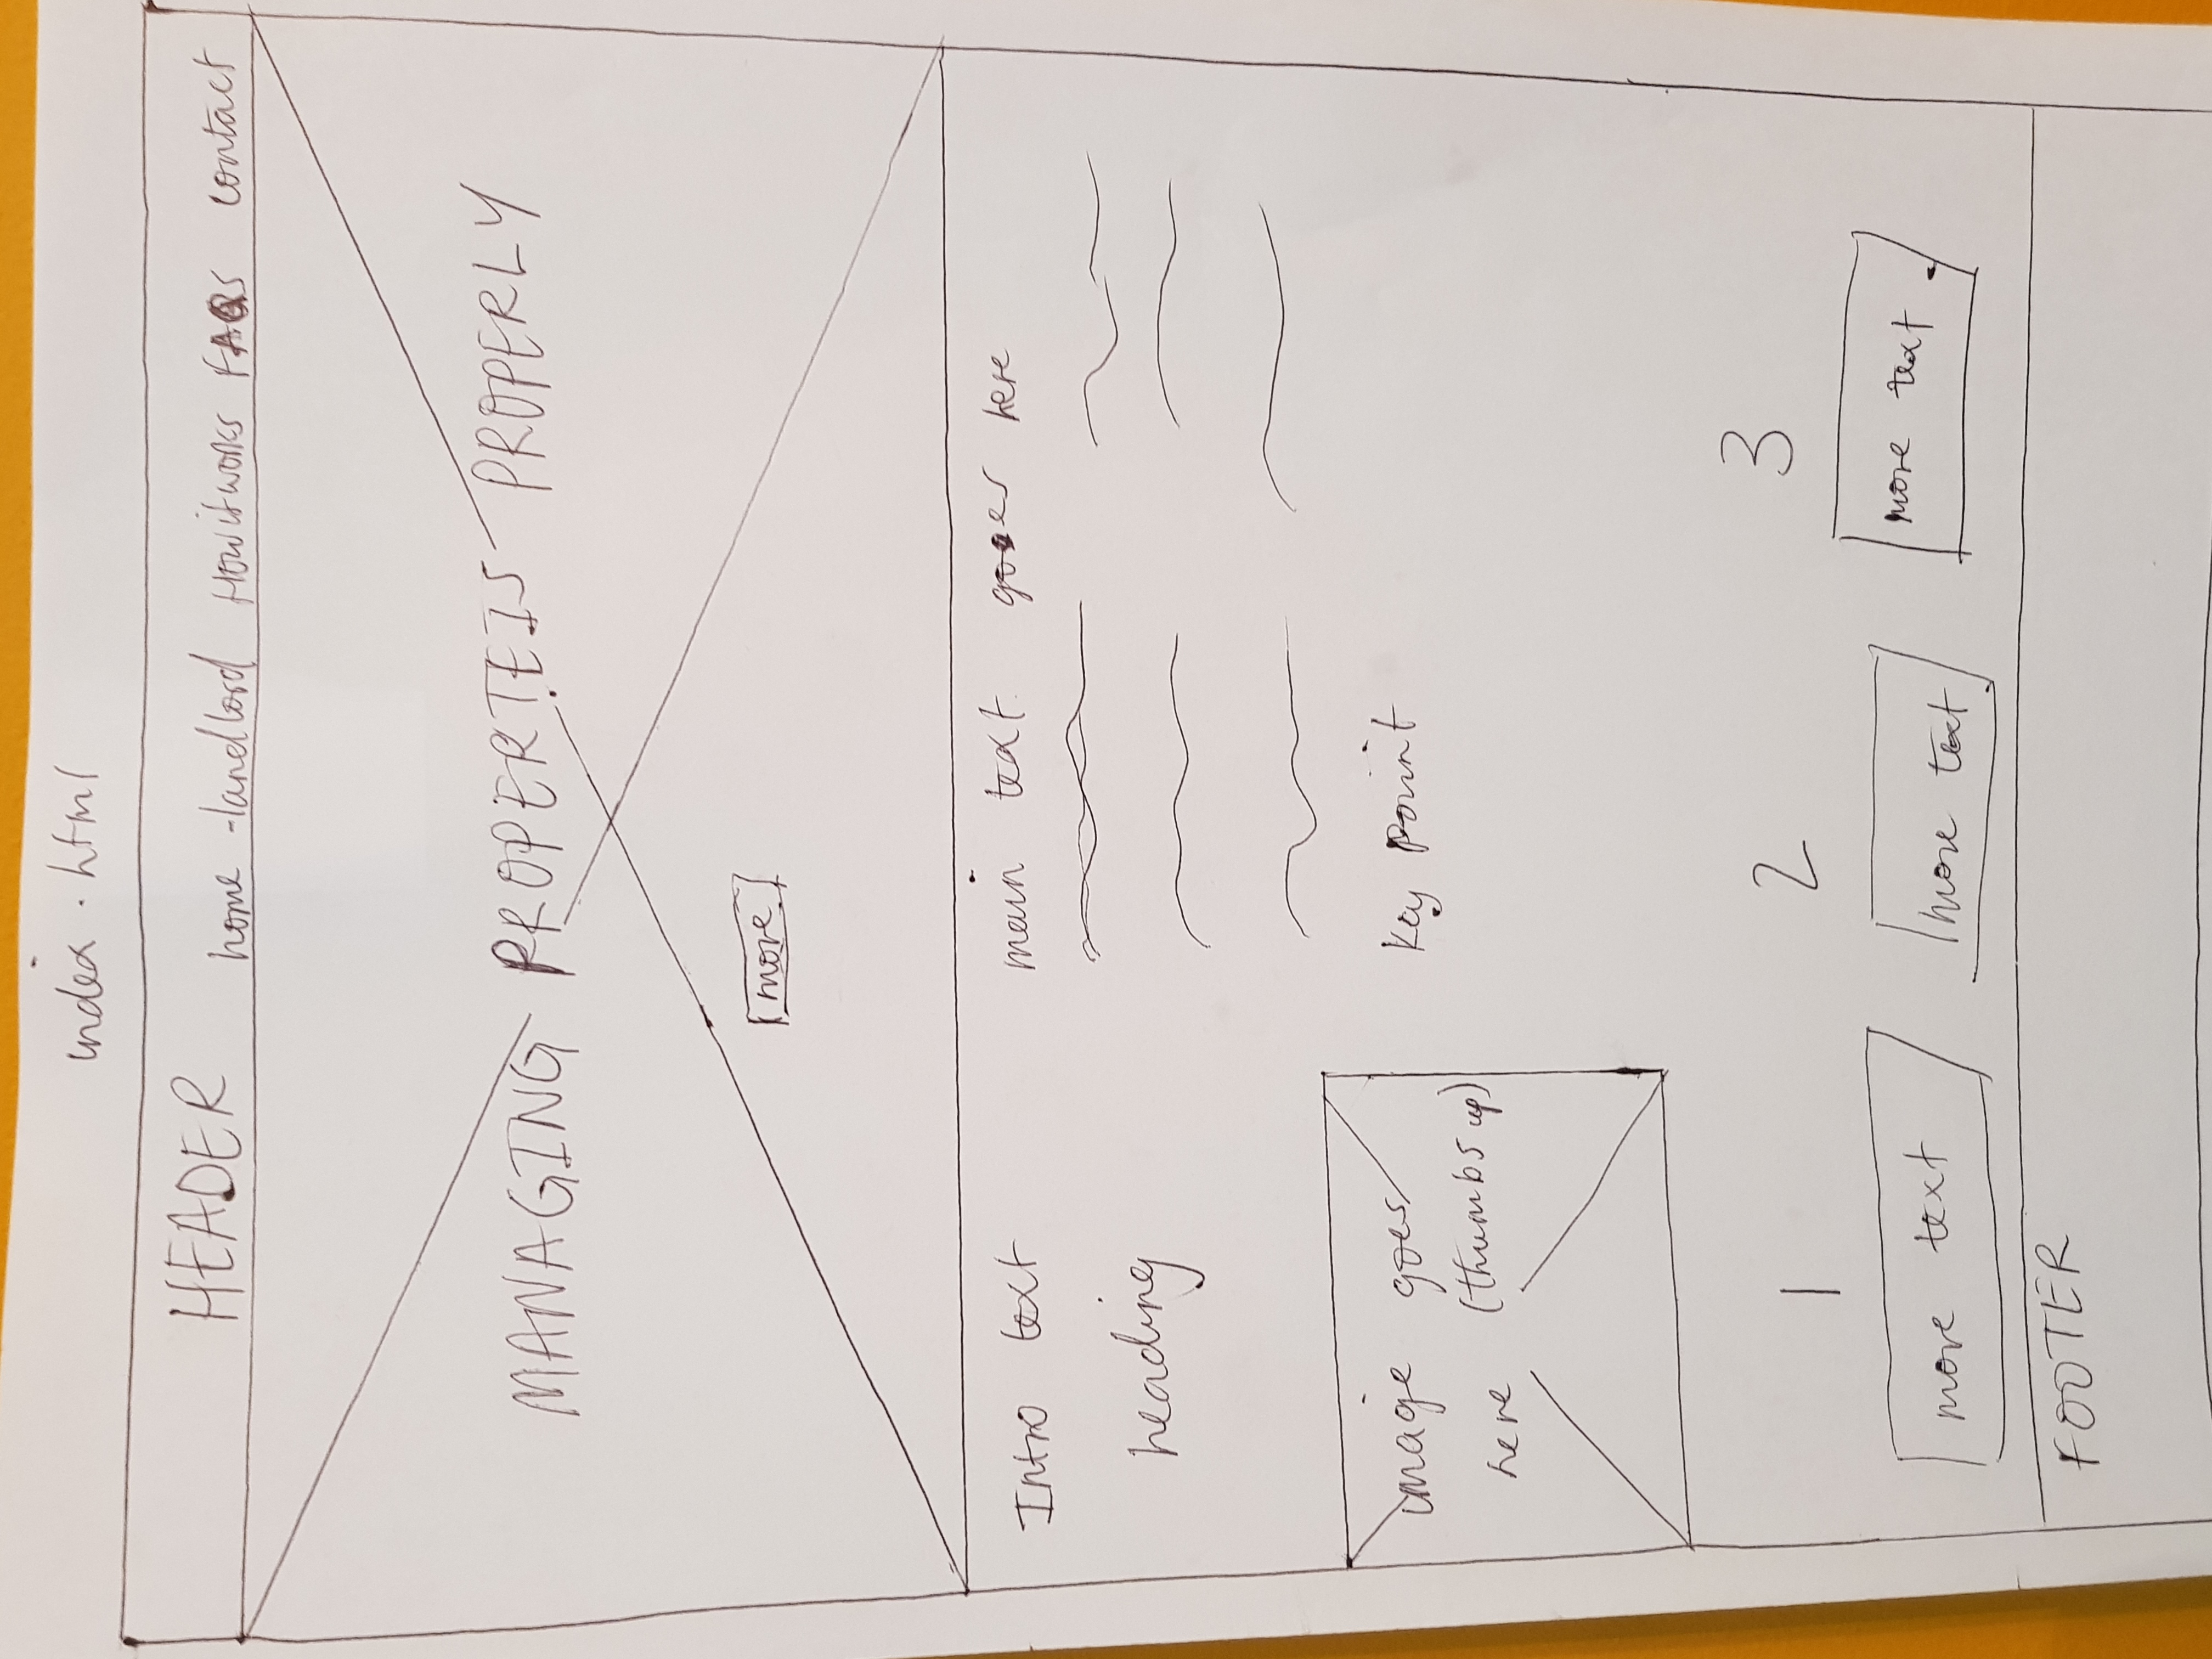 index.html
HEADER home -landlord Howitworks FAQS contact
MANAGING PROPERTEIS PROPERLY
more
Intro text
heading
main text goes here
image goes
here (thumbs up)
Key point
1 2 3
more text more text more text
FOOTER